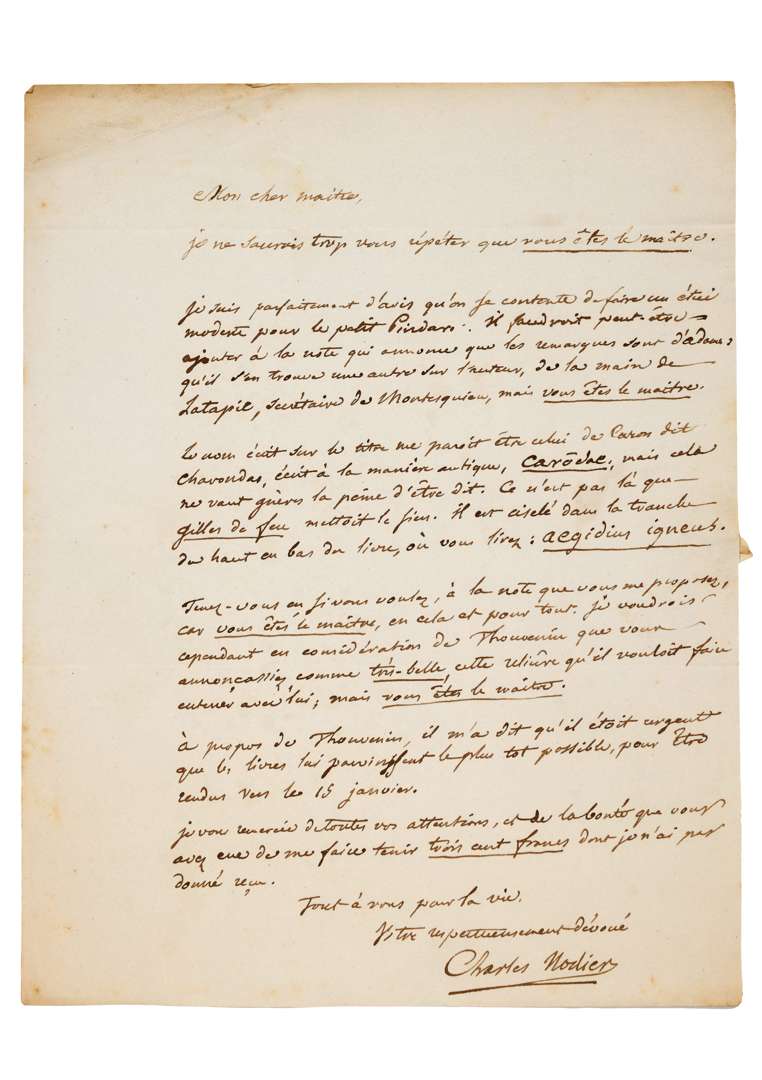 Mon cher maître,
je ne saurois trop vous répéter que vous êtes le maître.
je suis parfaitement d'avis qu'on se contente de faire un étui
modeste pour le petit Pindare. Il faudroit peut-être
ajouter à la note qui annonce que les remarques sont d'adam,
qu'il s'en trouve une autre sur l'auteur, de la main de
Latapie, secrétaire de Montesquieu, mais vous êtes le maître.
le nom écrit sur le titre me paroit être celui de Caron dit
Charondas, écrit à la manière antique, mais cela
ne vaut guères la peine d'être dit. Ce n'est pas là que
Gilles de feu mettoit le sien. Il est ciselé dans la tranche
du haut en bas du livre, où vous lirez : aegidius igneus.
Tenez-vous en si vous voulez, à la note que vous me proposez,
car vous êtes le maître, en cela et pour tout. je voudrois
cependant en considération de Thouvenin que vous
annonçassiez comme très-belle, cette reliûre qu'il vouloit faire
enterrer avec lui ; mais vous êtes le maître.
à propos de Thouvenin, il m'a dit qu'il étoit urgent
que les livres lui parvinssent le plus tot possible, pour être
rendus vers le 15 janvier.
je vous remercie de toutes vos attentions, et de la bonté que vous
avez eue de me faire tenir trois cent francs dont je n'ai pas
donné reçu.
Tout à vous pour la vie.
Votre respectueusement dévoué
Charles Nodier